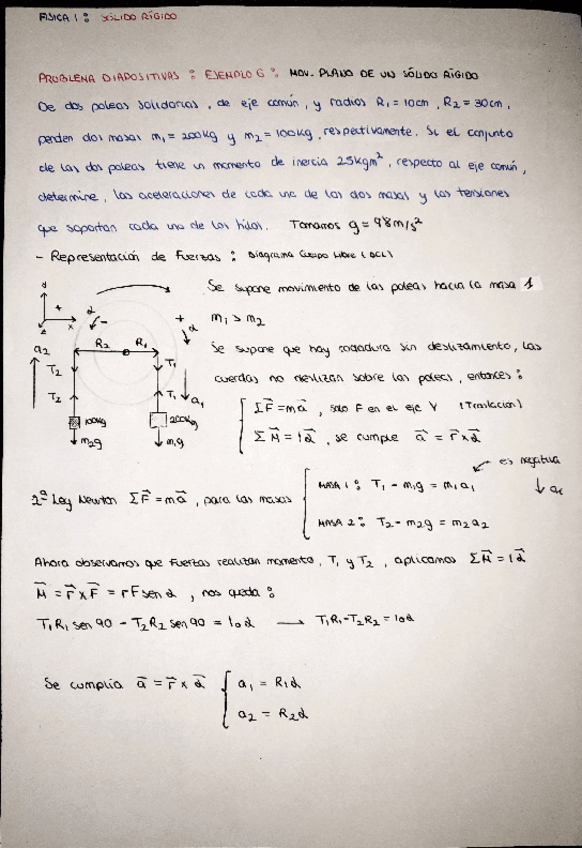 FISICA I : SÓLIDO RÍGIDO
PROBLEMA DIAPOSITIVAS : EJEMPLO 6 : MOV. PLANO DE UN SÓLIDO RÍGIDO
De dos poleas solidarias, de eje común, y radios R₁ = 10cm, R₂ = 30cm,
penden dos masas m₁ = 200kg y m₂ = 100kg, respectivamente. Si el conjunto
de las dos poleas tiene un momento de inercia 25kgm², respecto al eje común,
determine, las aceleraciones de cada una de las dos masas y las tensiones
que soportan cada uno de los hilos. Tomamos g = 9'8m/s²
- Representación de Fuerzas : Diagrama Cuerpo Libre (DCL)
Se supone movimiento de las poleas hacia la masa 1
m₁ > m₂
Se supone que hay rodadura sin deslizamiento, las
cuerdas no deslizan sobre las poleas, entonces :
ΣF⃗ = ma⃗, solo F en el eje Y (Traslacion)
ΣM⃗ = Iα⃗, se cumple a⃗ = r⃗ x α⃗
y + x z α + α
R₂ R₁
a₂ T₂ T₁
T₂ T₁ a₁
100kg 200kg
m₂g m₁g
es negativa
2ª Ley Newton ΣF⃗ = ma⃗, para las masas
MASA 1 : T₁ - m₁g = m₁a₁ ↓ a₁
MASA 2 : T₂ - m₂g = m₂a₂
Ahora observamos que fuerzas realizan momento, T₁ y T₂, aplicamos ΣM⃗ = Iα⃗
M⃗ = r⃗ x F⃗ = rF sen α, nos queda :
T₁R₁ sen 90 - T₂R₂ sen 90 = I₀α → T₁R₁ - T₂R₂ = I₀α
Se cumplia a⃗ = r⃗ x α⃗
a₁ = R₁α
a₂ = R₂α